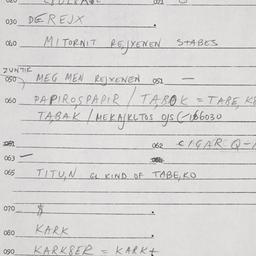 030 DEREJX
040 MITORNIT REJXENEN STABES
ZUNTIR
050 MEG MEN REJXENEN 051 —
060 PAPIROSPAPIR / TABOK = TABE,
TABAK / MEKAJKLTOS O/S
062 CIGAR
063 —
065 TITUN GL KIND OF TABE,KO
070 $
080 KARK
090 KARKBER = KARK+